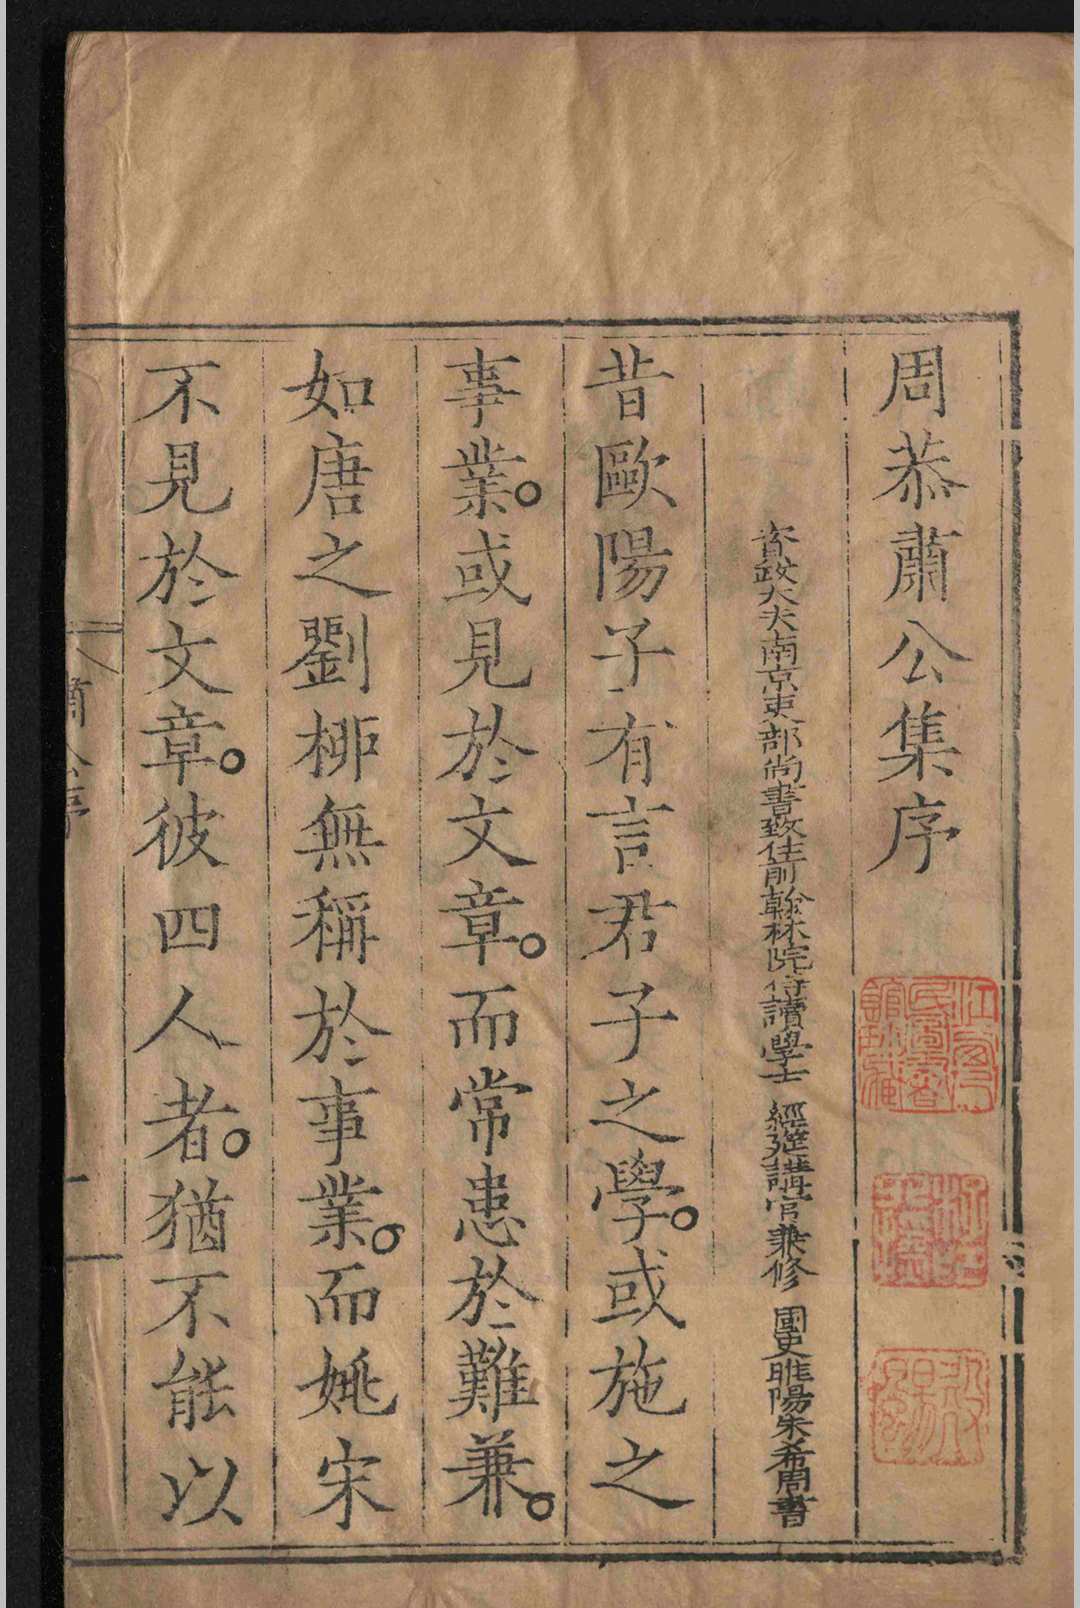 周恭肅公集序
資政大夫南京吏部尚書致仕前翰林院侍讀學士 經筵講官兼修 國史睢陽朱希周書
昔歐陽子有言君子之學。或施之
事業。或見於文章。而常患於難兼。
如唐之劉柳無稱於事業。而姚宋
不見於文章。彼四人者。猶不能以
肅公序